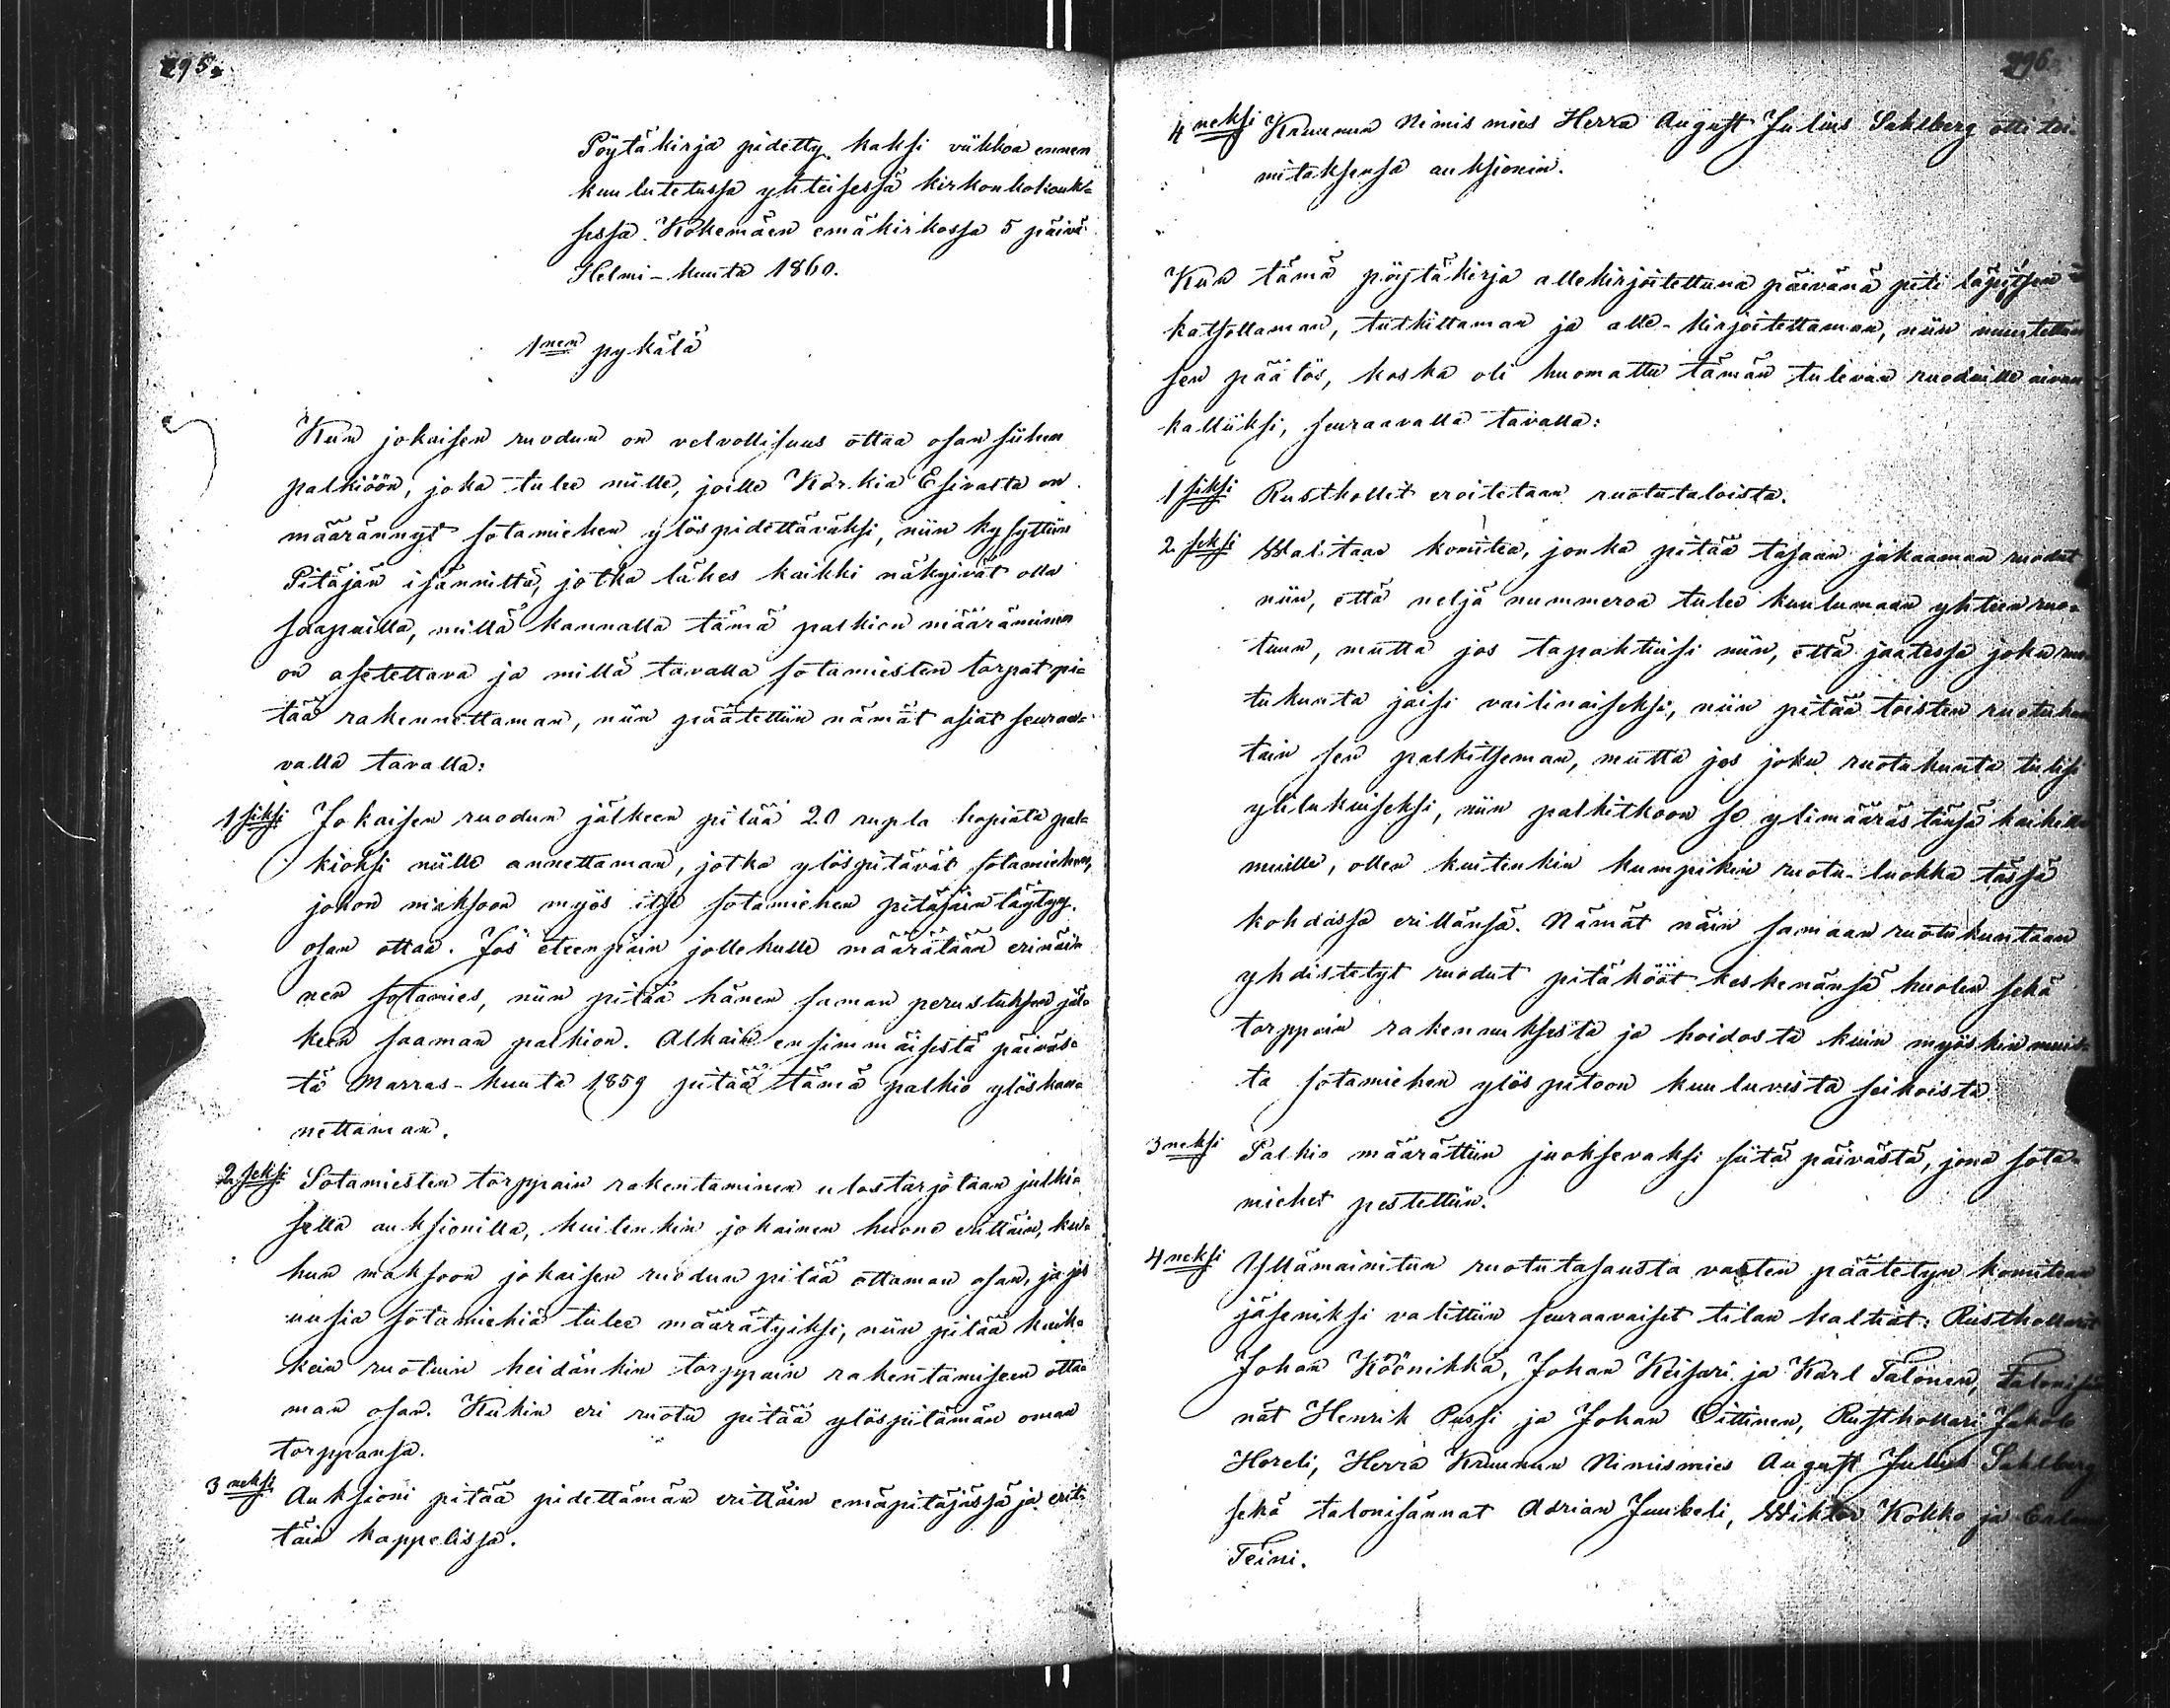 295.
Pöytäkirja pidetty kaksi viikkoa ennen
kuulutetussa yhteisessä kirkonkokouk-
sessa Kokemäen emäkirkossa 5 päivä
Helmi-kuuta 1860.
1nen pykälä
Kun jokaisen ruodun on velvollisuus ottaa osan siihen
palkiöön, joka tulee niille, joille Korkia Esivalta on
määrännyt sotamiehen ylöspidettäväksi, niin kysyttiin
Pitäjän isänniltä, jotka lähes kaikki näkyivät olla
saapuilla, millä kannalla tämä palkion määrääminen
on asetettava ja millä tavalla sotamiesten torpat pi-
tää rakennettaman, niin päätettiin nämät asiat seuraa-
valla tavalla:
1siksi Jokaisen ruodun jälkeen pitää 20 rupla hopiata pal-
kioksi niille annettaman, jotka ylöspitävät sotamiehen,
johon maksoon myös itse sotamiehen pitäjäin täytyy
osan ottaa. Jos eteenpäin jollekulle määrätään erinäi-
nen sotamies, niin pitää hänen saman perustuksen jäl-
keen saaman palkion. Alkain ensimmäisestä päiväs-
tä Marras-kuuta 1859 pitää tämä palkio ylöskan-
nettaman.
2seksi Sotamiesten torppain rakentaminen ulostarjotaan julki-
sella auksionilla, kuitenkin jokainen huone erittäin, ku-
hun maksoon jokaisen ruodun pitää ottaman osan, ja jos
uusia sotamiehiä tulee määrätyiksi, niin pitää kaik-
kein ruotuin heidänkin torppain rakentamiseen otta-
man osan. Kukin eri ruotu pitää ylöspitämän oman
torppansa.
3neksi Auksioni pitää pidettämän erittäin emäpitäjässä ja erit-
täin kappelissa.
296.
4neksi Kruunun Nimismies Herra August Julius Sahlberg otti toi-
mitaksensa auksionin.
Kun tämä pöytäkirja allekirjoitettuna päivänä piti läpitsen
katsottaman, tutkittaman ja alle-kirjoitettaman, niin muutettiin
sen päätös, koska oli huomattu tämän tulevan ruoduille aivan
kalliiksi, seuraavalla tavalla:
1siksi Rusthollit eroitetaan ruotutaloista.
2seksi Walitaan komitea, jonka pitää tasaan jakaaman ruodut
niin, että neljä nummeroa tulee kuulumaan yhteen ruo-
tuun, mutta jos tapahtuisi niin, että jaatessa joku ruo-
tukunta jäisi vaillinaiseksi, niin pitää toisten ruotukun
tain sen palkitseman, mutta jos joku ruotukunta tulisi
ylilukuiseksi, niin palkitkoon se ylimäärästänsä kaikille
muille, ollen kuitenkin kumpikin ruotu-luokka tässä
kohdassa erillänsä. Nämät näin samaan ruotukuntaan
yhdistetyt ruodut pitäkööt keskenänsä huolen sekä
torppain rakennuksesta ja hoidosta kuin myöskin muis-
ta sotamiehen ylöspitoon kuuluvista seikoista
3neksi Palkio määrättiin juoksevaksi siitä päivästä, jona sota-
miehet pestettiin.
4neksi Yllämainitun ruotutasausta varten päätetyn komitean
jäseniksi valittiin seuraavaiset tilan haltiat: Rusthollarit
Johan Köönikkä, Johan Keisari ja Karl Talonen, Talonisän
nät Henrik Pussi ja Johan Oittinen, Rusthollari Jakob
Horeli, Herra Kruunun Nimismies August Julius Sahlberg
sekä talonisännat Adrian Juubeli, Wiktor Kokko ja
Teini.